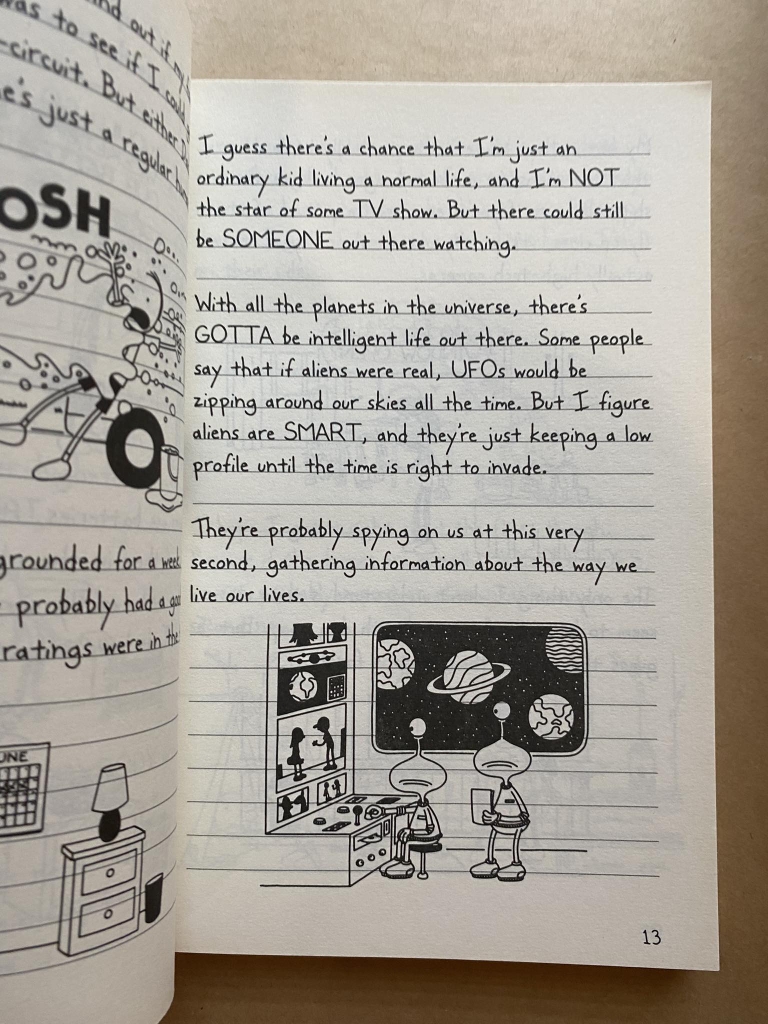 nd out if my
was to see if I could
-circuit. But either D
he's just a regular hum
OSH
grounded for a week
probably had a goo
ratings were in the
UNE
I guess there's a chance that I'm just an
ordinary kid living a normal life, and I'm NOT
the star of some TV show. But there could still
be SOMEONE out there watching.
With all the planets in the universe, there's
GOTTA be intelligent life out there. Some people
say that if aliens were real, UFOs would be
zipping around our skies all the time. But I figure
aliens are SMART, and they're just keeping a low
profile until the time is right to invade.
They're probably spying on us at this very
second, gathering information about the way we
live our lives.
13